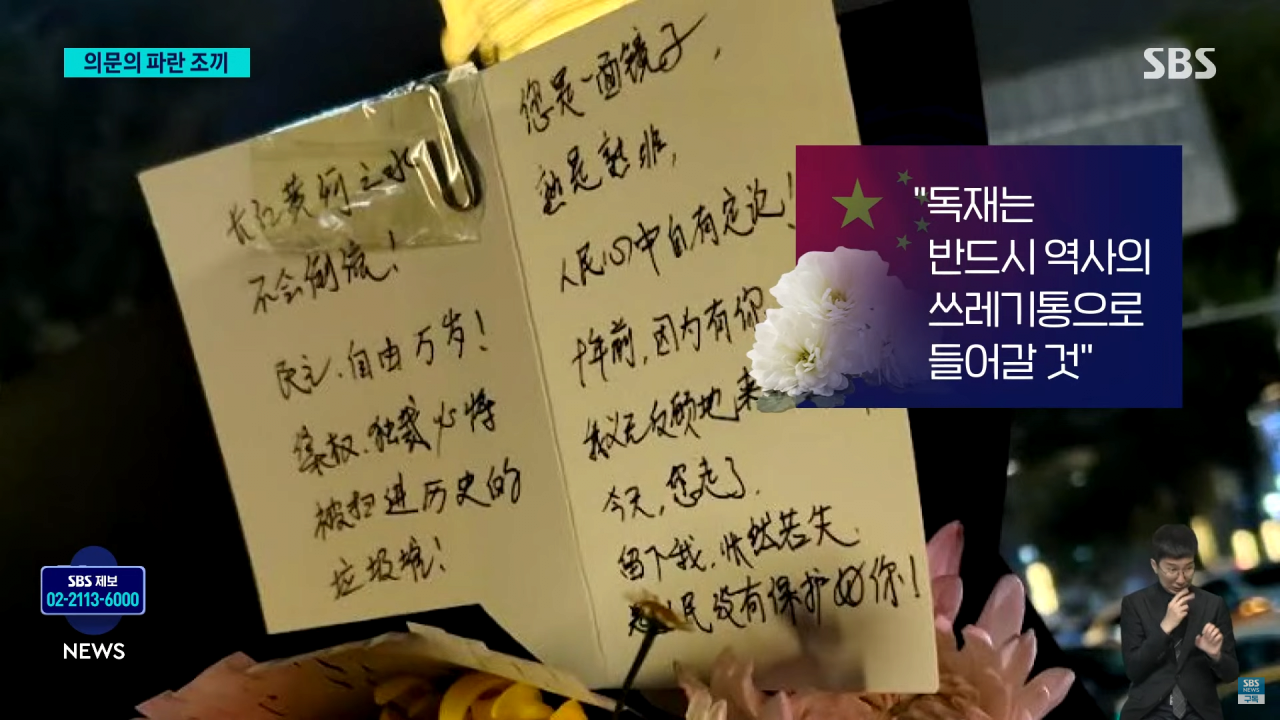 의문의 파란 조끼
SBS
长江黄河之水
不会倒流！
民主、自由万岁！
集权、独裁必将
被扫进历史的
垃圾堆！
您是一面镜子，
孰是孰非，
人民心中自有定论！
十年前，因为有你
我义无反顾地来
今天，您走了，
留下我，怅然若失
民没有保护好你！
"독재는
반드시 역사의
쓰레기통으로
들어갈 것"
SBS 제보
02-2113-6000
NEWS
SBS
NEWS
구독